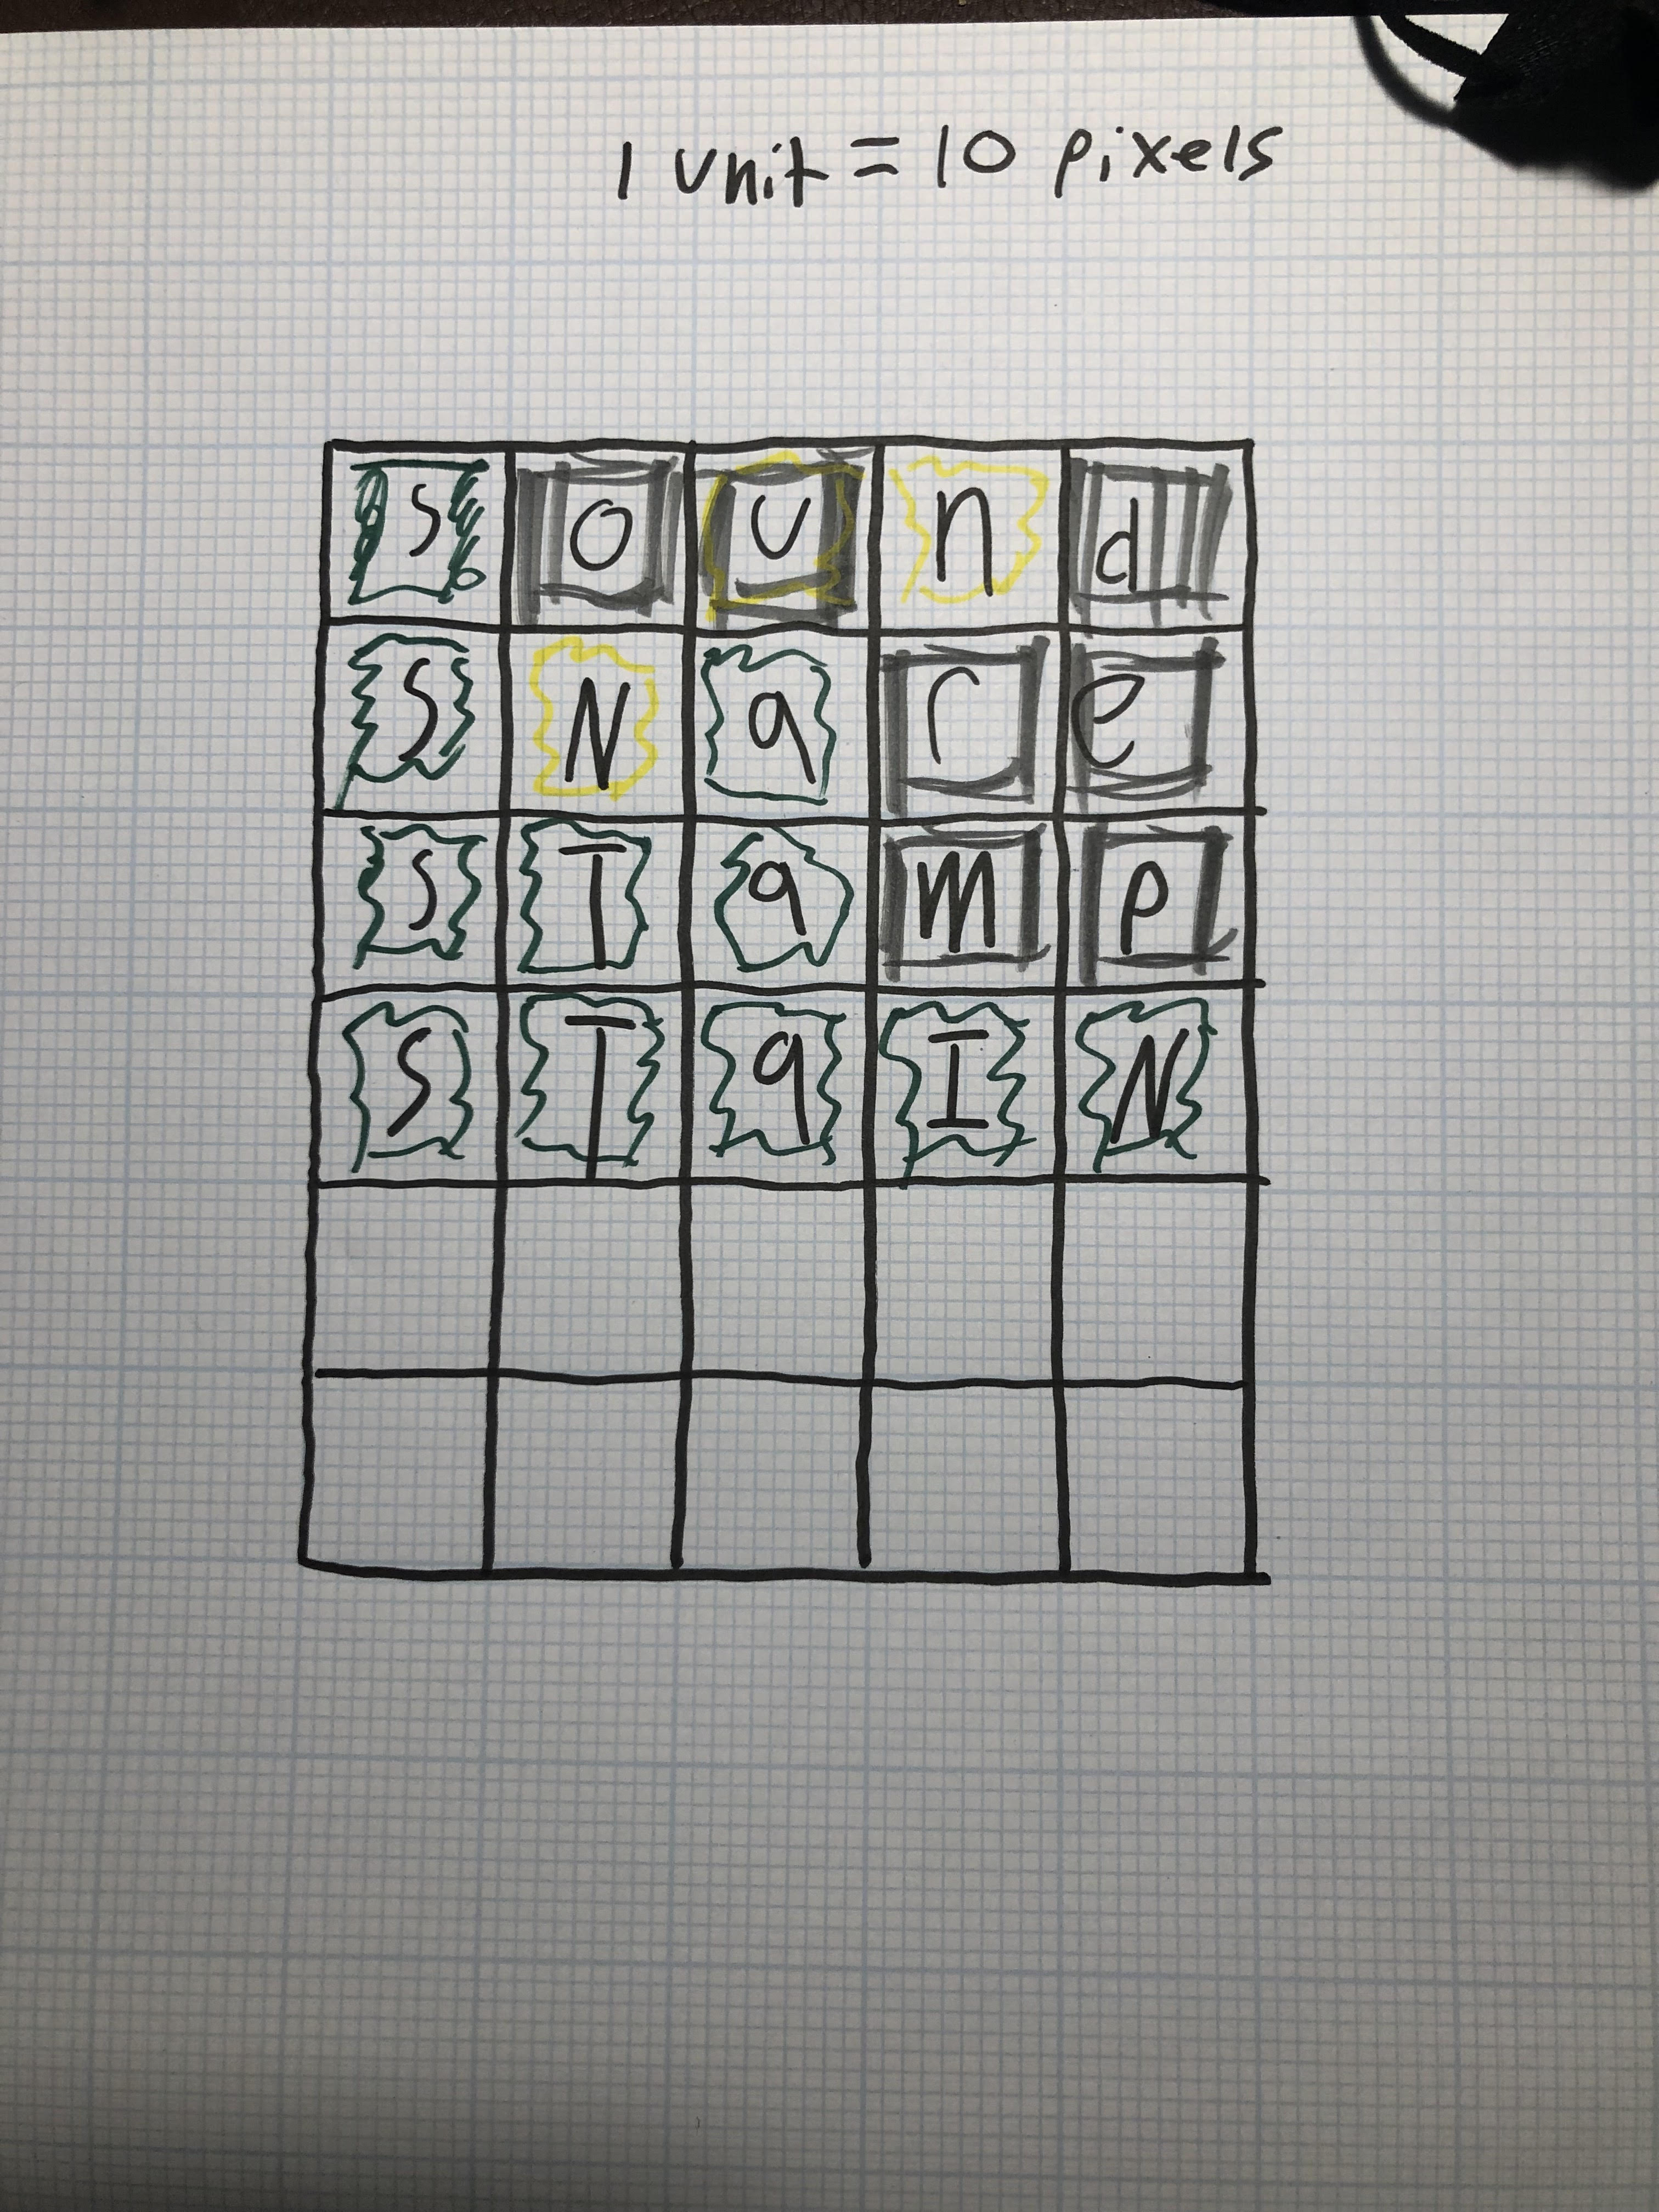 1 unit = 10 pixels
S o u n d
S N a r e
S T a m p
S T a I N